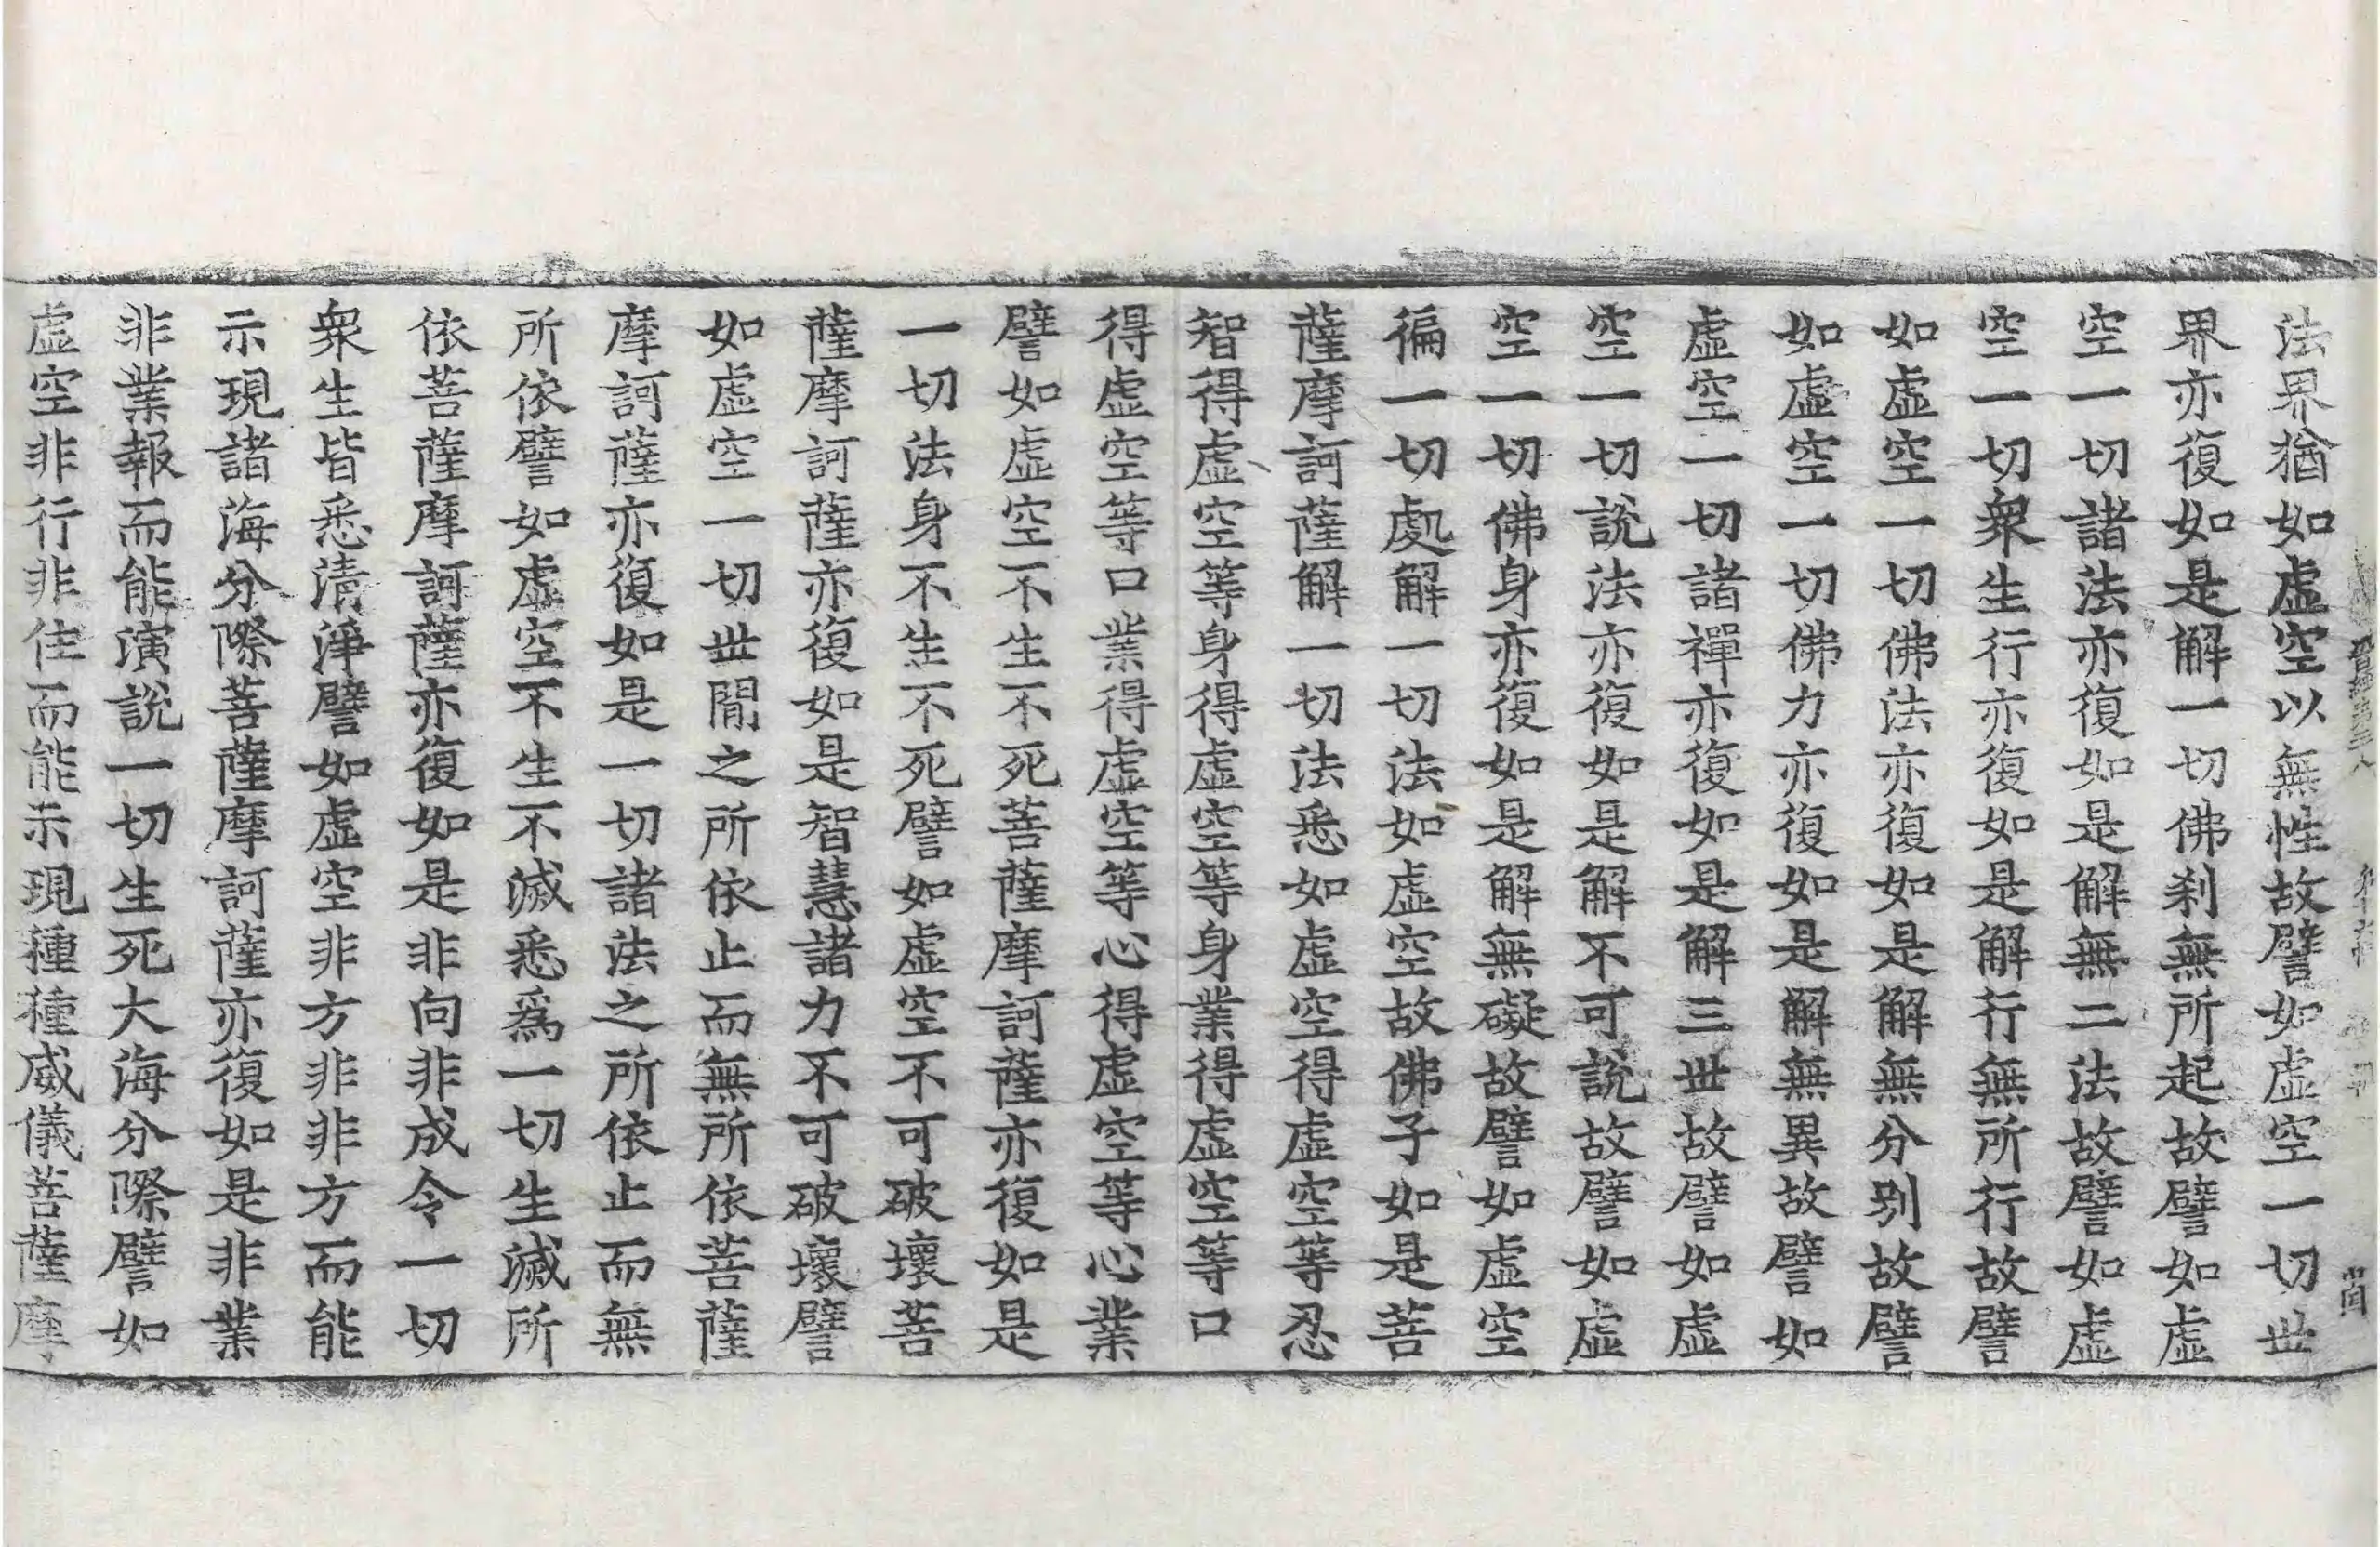 法界猶如虛空以無性故譬如虛空一切世
界亦復如是解一切佛刹無所起故譬如虛
空一切諸法亦復如是解無二法故譬如虛
空一切衆生行亦復如是解行無所行故譬
如虛空一切佛法亦復如是解無分別故譬
如虛空一切佛力亦復如是解無異故譬如
虛空一切諸禪亦復如是解三世故譬如虛
空一切說法亦復如是解不可說故譬如虛
空一切佛身亦復如是解無礙故譬如虛空
徧一切處解一切法如虛空故佛子如是菩
薩摩訶薩解一切法悉如虛空得虛空等忍
智得虛空等身得虛空等身業得虛空等口
得虛空等口業得虛空等心得虛空等心業
譬如虛空不生不死菩薩摩訶薩亦復如是
一切法身不生不死譬如虛空不可破壞菩
薩摩訶薩亦復如是智慧諸力不可破壞譬
如虛空一切世閒之所依止而無所依菩薩
摩訶薩亦復如是一切諸法之所依止而無
所依譬如虛空不生不滅悉爲一切生滅所
依菩薩摩訶薩亦復如是非向非成令一切
衆生皆悉清淨譬如虛空非方非非方而能
示現諸海分際菩薩摩訶薩亦復如是非業
非業報而能演說一切生死大海分際譬如
虛空非行非住而能示現種種威儀菩薩摩